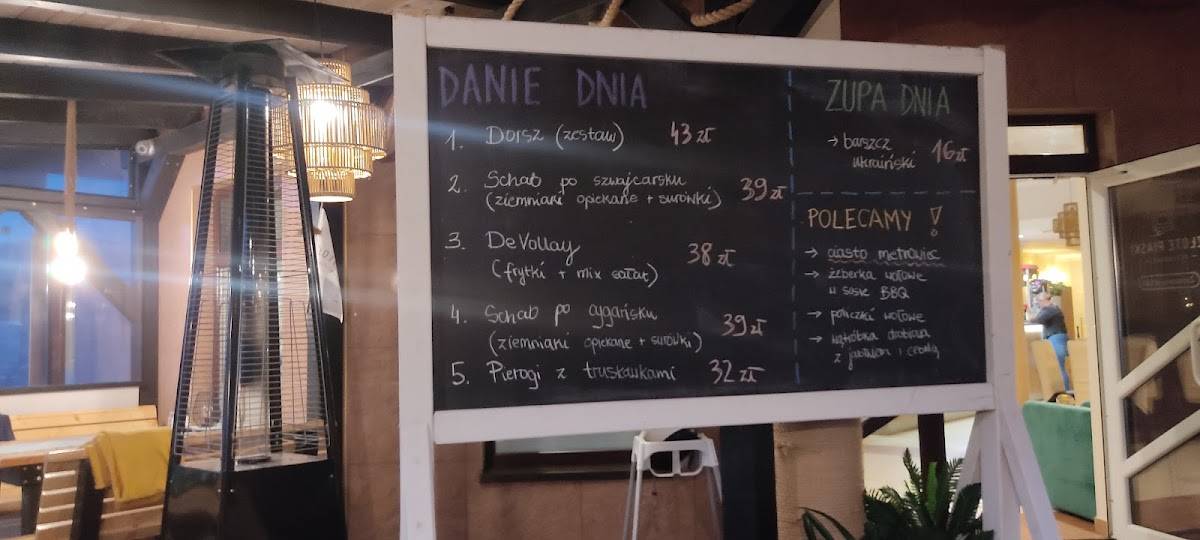 DANIE DNIA
1. Dorsz (zestaw) 43 zł
2. Schab po szwajcarsku
(ziemniani opiekane + surówki) 39 zł
3. DeVollay 38 zł
(frytki + mix sałat)
4. Schab po cygańsku
(ziemniani opiekane + surówki) 39 zł
5. Pierogi z truskawkami 32 zł
ZUPA DNIA
→ barszcz
ukraiński 16 zł
POLECAMY !
→ ciasto metrowiec
→ żeberka wołowe
w sosie BBQ
→ policzki wołowe
→ wątróbka drobiowa
z jabłkiem i cebulą
ZŁOTE PIASKI